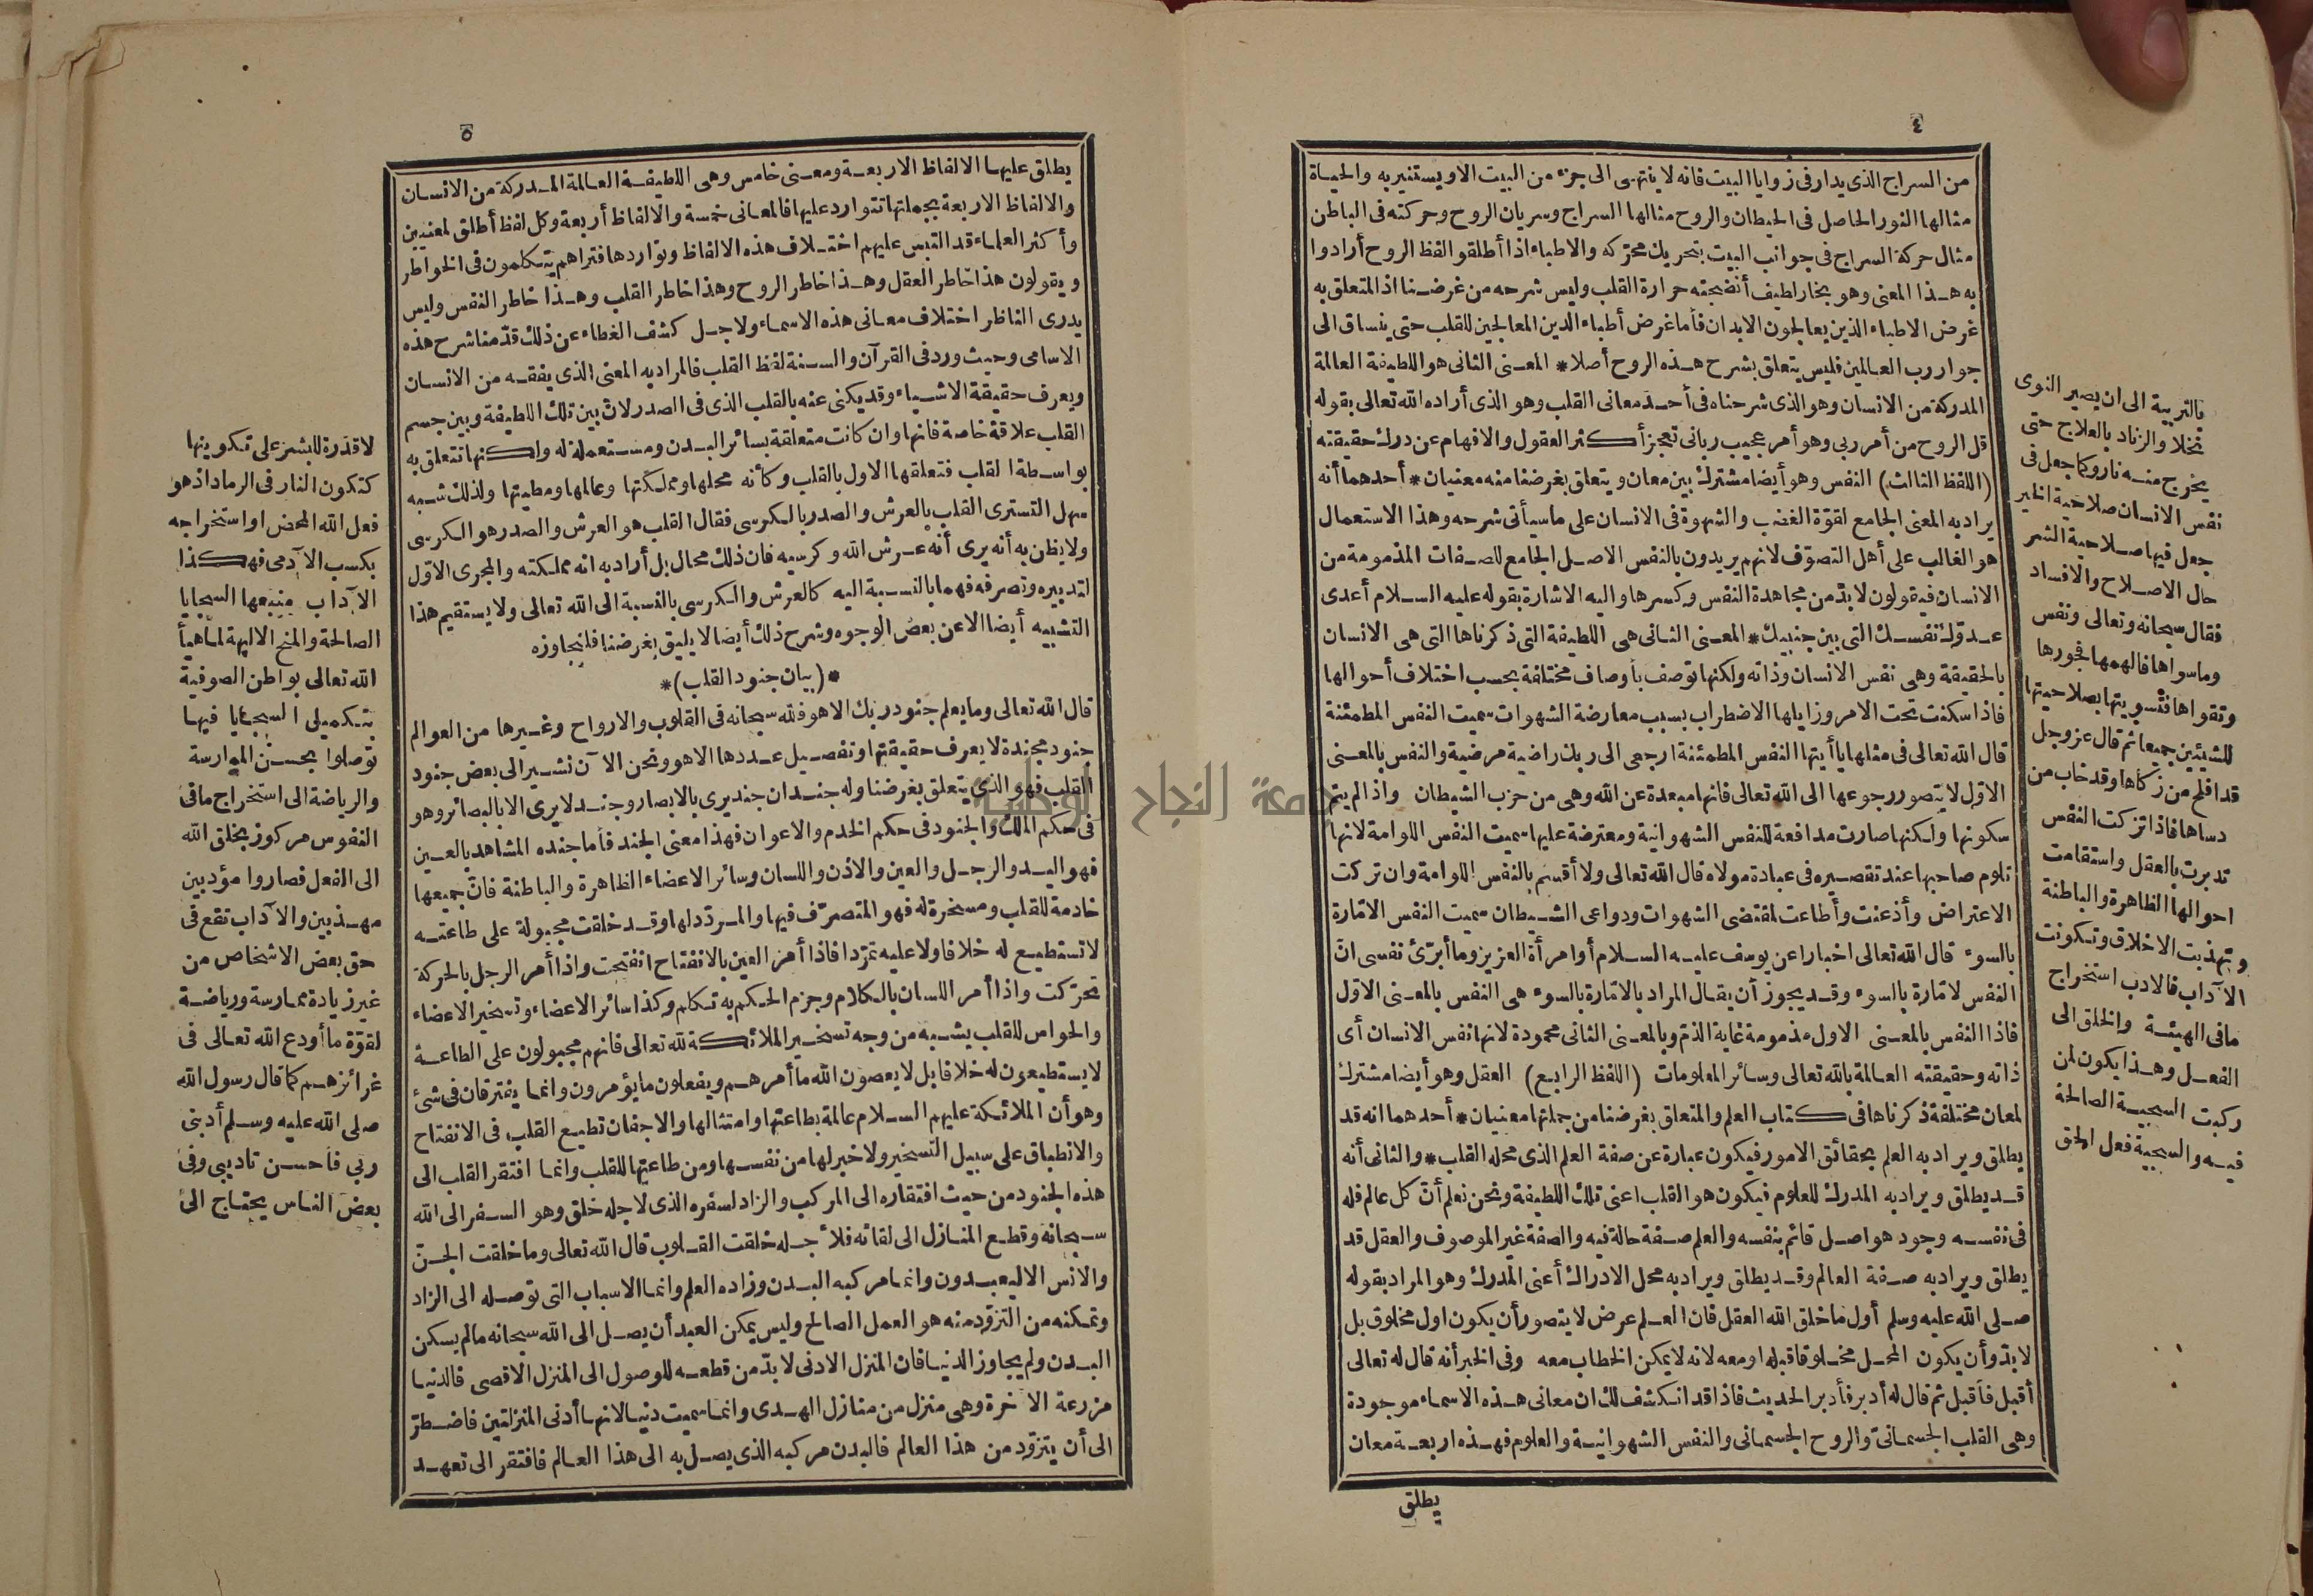 ٤
من السراج الذى يدار فى زوايا البيت فانه لا ينتهى الى جزء من البيت الا ويستنير به والحياة
مثالها النور الحاصل فى الحيطان والروح مثالها السراج وسريان الروح وحركته فى الباطن
مثال حركة السراج فى جوانب البيت بتحريك محركه والاطباء اذا أطلقوا لفظ الروح أرادوا
به هذا المعنى وهو بخار لطيف أنضجته حرارة القلب وليس شرحه من غرضنا اذ المتعلق به
غرض الاطباء الذين يعالجون الابدان فأما غرض أطباء الدين المعالجين للقلب حتى ينساق الى
جوار رب العالمين فليس يتعلق بشرح هذه الروح أصلا * المعنى الثانى هو اللطيفة العالمة
المدركة من الانسان وهو الذى شرحناه فى أحد معانى القلب وهو الذى أراده الله تعالى بقوله
قل الروح من أمر ربى وهو أمر عجيب ربانى تعجز أكثر العقول والافهام عن درك حقيقته
(اللفظ الثالث) النفس وهو أيضا مشترك بين معان ويتعلق بغرضنا منه معنيان * أحدهما أنه
يراد به المعنى الجامع لقوة الغضب والشهوة فى الانسان على ما سيأتى شرحه وهذا الاستعمال
هو الغالب على أهل التصوّف لانهم يريدون بالنفس الاصل الجامع للصفات المذمومة من
الانسان فيقولون لا بدّ من مجاهدة النفس وكسرها واليه الاشارة بقوله عليه السلام أعدى
عدوّك نفسك التى بين جنبيك * المعنى الثانى هى اللطيفة التى ذكرناها التى هى الانسان
بالحقيقة وهى نفس الانسان وذاته ولكنها توصف بأوصاف مختلفة بحسب اختلاف أحوالها
فاذا سكنت تحت الامر وزايلها الاضطراب بسبب معارضة الشهوات سميت النفس المطمئنة
قال الله تعالى فى مثلها يا أيتها النفس المطمئنة ارجعى الى ربك راضية مرضية والنفس بالمعنى
الاول لا يتصور رجوعها الى الله تعالى فانها مبعدة عن الله وهى من حزب الشيطان واذا لم يتم
سكونها ولكنها صارت مدافعة للنفس الشهوانية ومعترضة عليها سميت النفس اللوامة لانها
تلوم صاحبها عند تقصيره فى عبادة مولاه قال الله تعالى ولا أقسم بالنفس اللوامة وان تركت
الاعتراض وأذعنت وأطاعت لمقتضى الشهوات ودواعى الشيطان سميت النفس الامّارة
بالسوء قال الله تعالى اخبارا عن يوسف عليه السلام أو امرأة العزيز وما أبرّئ نفسى انّ
النفس لامّارة بالسوء وقد يجوز أن يقال المراد بالامّارة بالسوء هى النفس بالمعنى الاوّل
فاذا النفس بالمعنى الاول مذمومة غاية الذمّ وبالمعنى الثانى محمودة لانها نفس الانسان أى
ذاته وحقيقته العالمة بالله تعالى وسائر المعلومات (اللفظ الرابع) العقل وهو أيضا مشترك
لمعان مختلفة ذكرناها فى كتاب العلم والمتعلق بغرضنا من جملتها معنيان * أحدهما انه قد
يطلق ويراد به العلم بحقائق الامور فيكون عبارة عن صفة العلم الذى محله القلب * والثانى أنه
قد يطلق ويراد به المدرك للعلوم فيكون هو القلب اعنى تلك اللطيفة ونحن نعلم أنّ كل عالم فله
فى نفسه وجود هو اصل قائم بنفسه والعلم صفة حالة فيه والصفة غير الموصوف والعقل قد
يطلق ويراد به صفة العالم وقد يطلق ويراد به محل الادراك أعنى المدرك وهو المراد بقوله
صلى الله عليه وسلم أول ما خلق الله العقل فان العلم عرض لا يتصور أن يكون اول مخلوق بل
لا بدّ وأن يكون المحل مخلوقا قبله او معه لانه لا يمكن الخطاب معه وفى الخبر أنه قال له تعالى
أقبل فأقبل ثم قال له أدبر فأدبر الحديث فاذا قد انكشف لك ان معانى هذه الاسماء موجودة
وهى القلب الجسمانىّ والروح الجسمانى والنفس الشهوانية والعلوم فهذه اربعة معان
يطلق
بالتربية الى ان يصير النوى
نخلا والزناد بالعلاج حتى
يخرج منه نار وكما جعل فى
نفس الانسان صلاحية الخير
جعل فيها صلاحية الشر
حال الاصلاح والافساد
فقال سبحانه وتعالى ونفس
وما سواها فألهمها فجورها
وتقواها فتسويتها بصلاحيتها
للشيئين جميعا ثم قال عز وجل
قد افلح من زكاها وقد خاب من
دساها فاذا تزكت النفس
تدبرت بالعقل واستقامت
احوالها الظاهرة والباطنة
وتهذبت الاخلاق وتكونت
الآداب فالادب استخراج
ما فى الهيئة والخلق الى
الفعل وهذا يكون لمن
ركبت السجية الصالحة
فيه والسجية فعل الحق
٥
يطلق عليها الالفاظ الاربعة ومعنى خامس وهى اللطيفة العالمة المدركة من الانسان
والالفاظ الاربعة بجملتها تتوارد عليها فالمعانى خمسة والالفاظ أربعة وكل لفظ أطلق لمعنيين
وأكثر العلماء قد التبس عليهم اختلاف هذه الالفاظ وتواردها فتراهم يتكلمون فى الخواطر
ويقولون هذا خاطر العقل وهذا خاطر الروح وهذا خاطر القلب وهذا خاطر النفس وليس
يدرى الناظر اختلاف معانى هذه الاسماء ولاجل كشف الغطاء عن ذلك قدّمنا شرح هذه
الاسامى وحيث ورد فى القرآن والسنة لفظ القلب فالمراد به المعنى الذى يفقه من الانسان
ويعرف حقيقة الاشياء وقد يكنى عنه بالقلب الذى فى الصدر لانّ بين تلك اللطيفة وبين جسم
القلب علاقة خاصة فانها وان كانت متعلقة بسائر البدن ومستعملة له ولكنها تتعلق به
بواسطة القلب فتعلقها الاول بالقلب وكأنه محلها ومملكتها وعالمها ومطيتها ولذلك شبه
سهل التسترى القلب بالعرش والصدر بالكرسى فقال القلب هو العرش والصدر هو الكرسى
ولا يظن به أنه يرى أنه عرش الله وكرسيه فان ذلك محال بل أراد به انه مملكته والمجرى الاوّل
لتدبيره وتصرفه فهما بالنسبة اليه كالعرش والكرسى بالنسبة الى الله تعالى ولا يستقيم هذا
التشبيه أيضا الا عن بعض الوجوه وشرح ذلك أيضا لا يليق بغرضنا فلنجاوزه
*(بيان جنود القلب)*
قال الله تعالى وما يعلم جنود ربك الا هو فلله سبحانه فى القلوب والارواح وغيرها من العوالم
جنود مجندة لا يعرف حقيقتها وتفصيل عددها الا هو ونحن الآن نشير الى بعض جنود
القلب فهو الذى يتعلق بغرضنا وله جندان جند يرى بالابصار وجند لا يرى الا بالبصائر وهو
فى حكم الملك والجنود فى حكم الخدم والاعوان فهذا معنى الجند فأما جنده المشاهد بالعين
فهو اليد والرجل والعين والاذن واللسان وسائر الاعضاء الظاهرة والباطنة فانّ جميعها
خادمة للقلب ومسخرة له فهو المتصرّف فيها والمردّد لها وقد خلقت مجبولة على طاعته
لا تستطيع له خلافا ولا عليه تمرّدا فاذا أمر العين بالانفتاح انفتحت واذا أمر الرجل بالحركة
تحرّكت واذا أمر اللسان بالكلام وجزم الحكم به تكلم وكذا سائر الاعضاء وتسخير الاعضاء
والحواس للقلب يشبه من وجه تسخير الملائكة لله تعالى فانهم مجبولون على الطاعة
لا يستطيعون له خلافا بل لا يعصون الله ما أمرهم ويفعلون ما يؤمرون وانما يفترقان فى شئ
وهو أن الملائكة عليهم السلام عالمة بطاعتها وامتثالها والاجفان تطيع القلب فى الانفتاح
والانطباق على سبيل التسخير ولا خبر لها من نفسها ومن طاعتها للقلب وانما افتقر القلب الى
هذه الجنود من حيث افتقاره الى المركب والزاد لسفره الذى لاجله خلق وهو السفر الى الله
سبحانه وقطع المنازل الى لقائه فلأجله خلقت القلوب قال الله تعالى وما خلقت الجنّ
والانس الا ليعبدون وانما مركبه البدن وزاده العلم وانما الاسباب التى توصله الى الزاد
وتمكنه من التزوّد منه هو العمل الصالح وليس يمكن العبد أن يصل الى الله سبحانه ما لم يسكن
البدن ولم يجاوز الدنيا فان المنزل الادنى لا بدّ من قطعه للوصول الى المنزل الاقصى فالدنيا
مزرعة الآخرة وهى منزل من منازل الهدى وانما سميت دنيا لانها أدنى المنزلتين فاضطرّ
الى أن يتزوّد من هذا العالم فالبدن مركبه الذى يصل به الى هذا العالم فافتقر الى تعهد
لا قدرة للبشر على تكوينها
كتكون النار فى الرماد اذ هو
فعل الله المحض او استخراجه
بكسب الآدمى فهكذا
الآداب منبعها السجايا
الصالحة والمنح الالهية لما هيأ
الله تعالى بواطن الصوفية
بتكميل السجايا فيها
توصلوا بحسن الممارسة
والرياضة الى استخراج ما فى
النفوس مركوز بخلق الله
الى الفعل فصاروا مؤدبين
مهذبين والآداب تقع فى
حق بعض الاشخاص من
غير زيادة ممارسة ورياضة
لقوّة ما أودع الله تعالى فى
غرائزهم كما قال رسول الله
صلى الله عليه وسلم أدبنى
ربى فأحسن تاديبى وفى
بعض الناس يحتاج الى
جامعة النجاح الوطنية